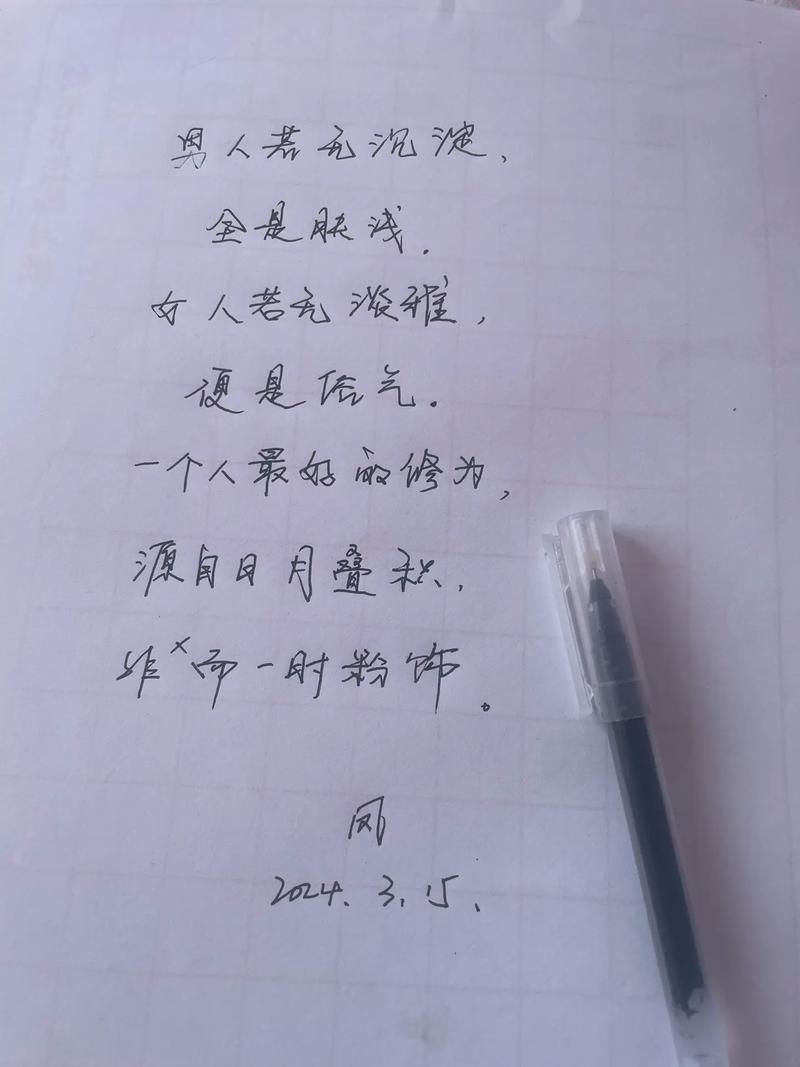 男人若无沉淀、
全是肤浅.
女人若无淡雅,
便是俗气.
一个人最好的修为,
源自日月叠积、
非×而一时粉饰。
凤
2024. 3. 15.